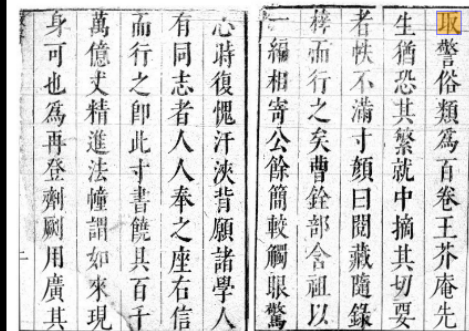 取警俗類為百卷王芥庵先
生猶恐其繁就中摘其切要
者帙不滿寸顏曰閱藏隨錄
梓而行之矣曹銓部含祖以
一編相寄公餘簡較觸眼驚
心時復愧汗浹背願諸學人
有同志者人人奉之座右信
而行之卽此寸書饒其百千
萬億丈精進法幢謂如來現
身可也為再登劑劂用廣其